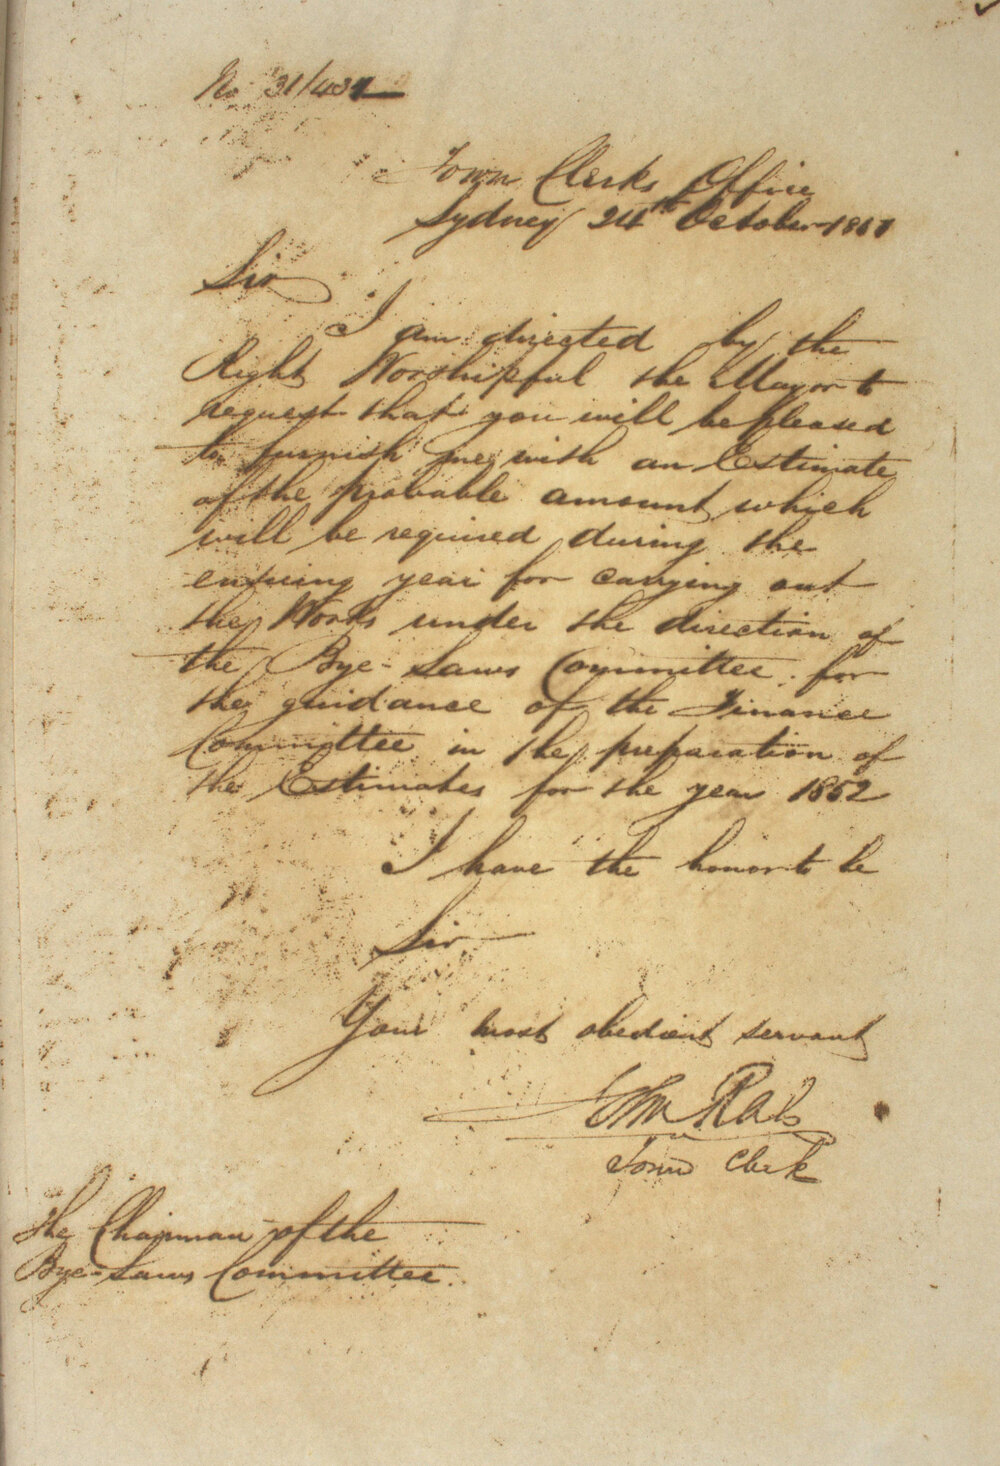 No 31/431
Town Clerks Office
Sydney 24th October 1861
Sir
I am directed by the
Right Worshipful the Mayor to
request that you will be pleased
to furnish me with an Estimate
of the probable amount which
will be required during the
ensuing year for carrying out
the Works under the direction of
the Bye-Laws Committee for
the guidance of the Finance
Committee in the preparation of
the Estimates for the year 1862
I have the honor to be
Sir
Your most obedient servant
John Rae
Town Clerk
The Chairman of the
Bye-Laws Committee.